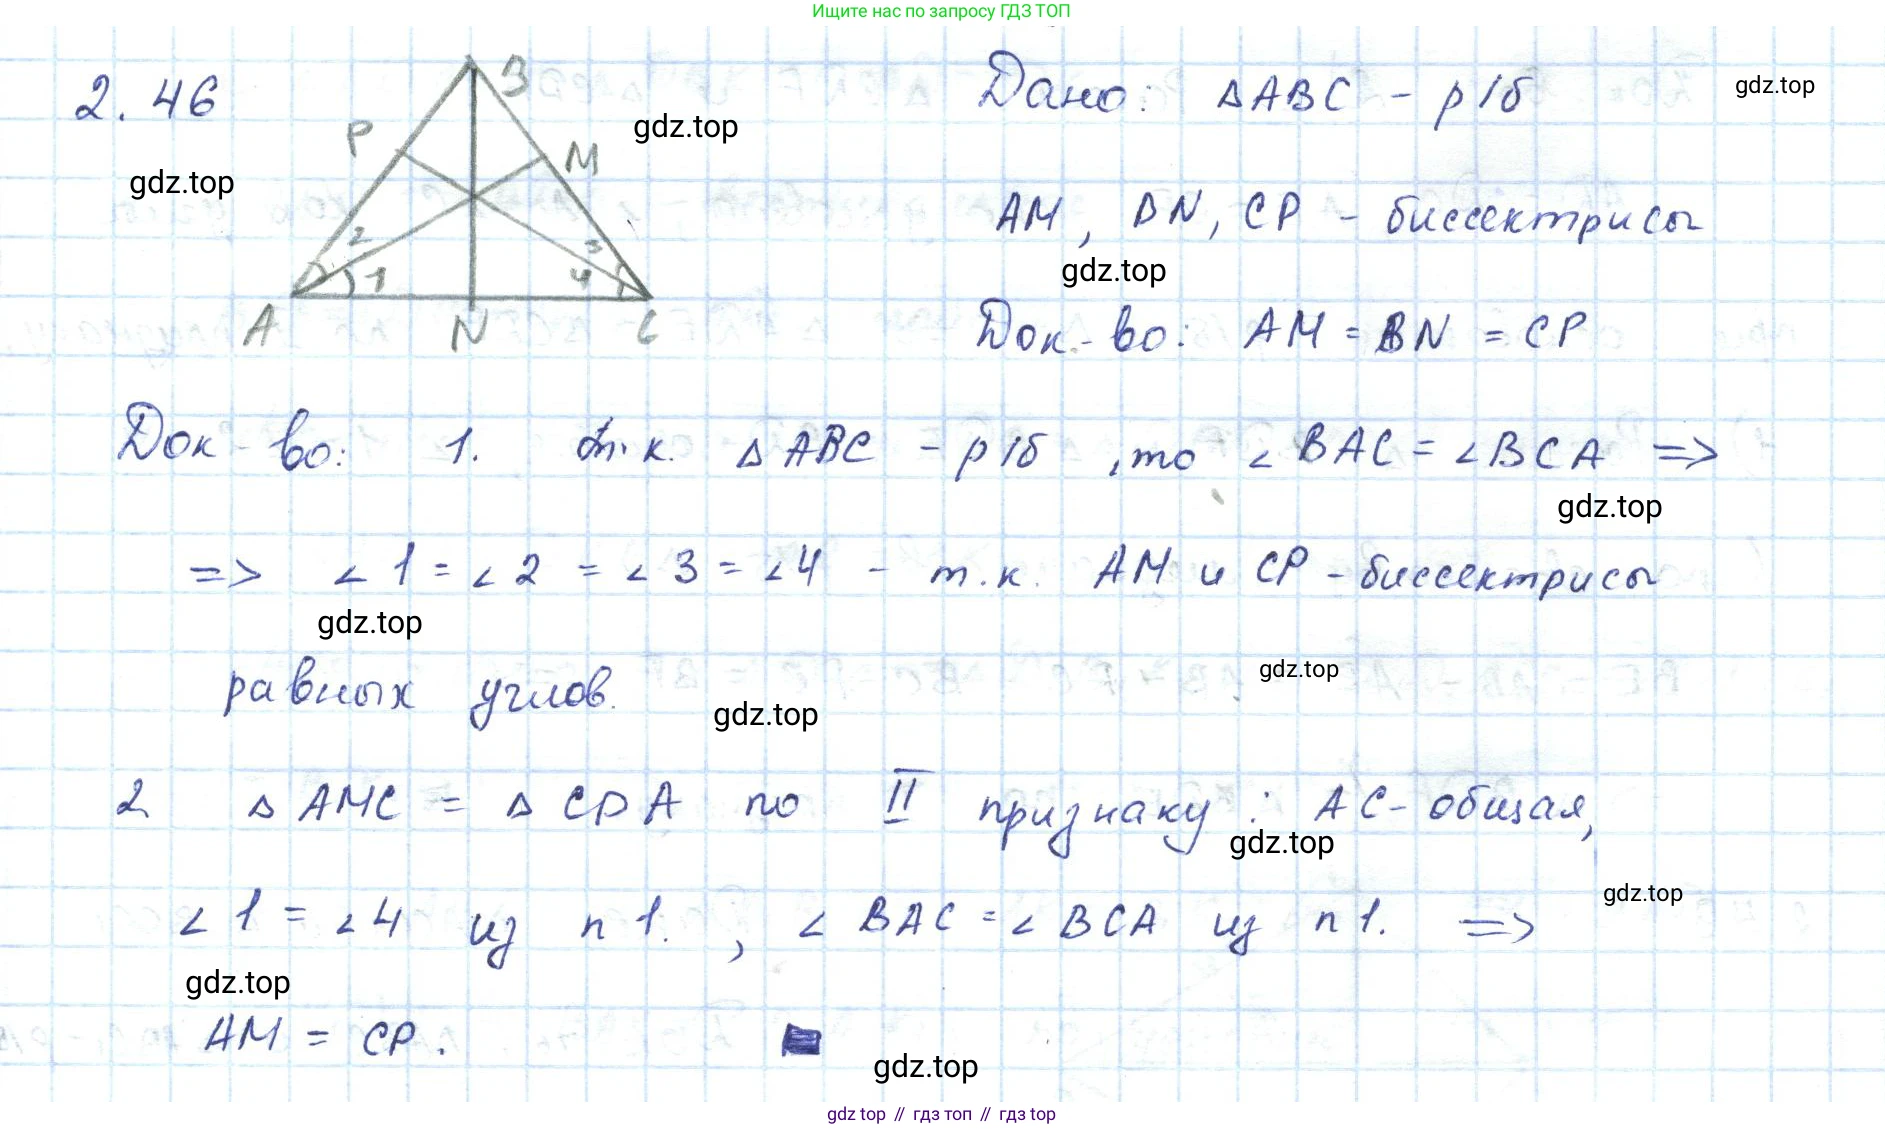 Ищите нас по запросу ГДЗ ТОП
2.46
B
P
M
2
1
3
4
A
N
C
Дано: △ABC - р/б
gdz.top
gdz.top
gdz.top
AM, BN, CP - биссектрисы
gdz.top
Док-во: AM = BN = CP
Док-во: 1. т.к. △ABC - р/б, то ∠BAC = ∠BCA =>
gdz.top
=> ∠1 = ∠2 = ∠3 = ∠4 - т.к. AM и CP - биссектрисы
gdz.top
gdz.top
равных углов.
gdz.top
2 △AMC = △CPA по II признаку: AC - общая,
gdz.top
gdz.top
∠1 = ∠4 из п1., ∠BAC = ∠BCA из п1. =>
gdz.top
AM = CP.
gdz.top
gdz top // гдз топ // гдз top